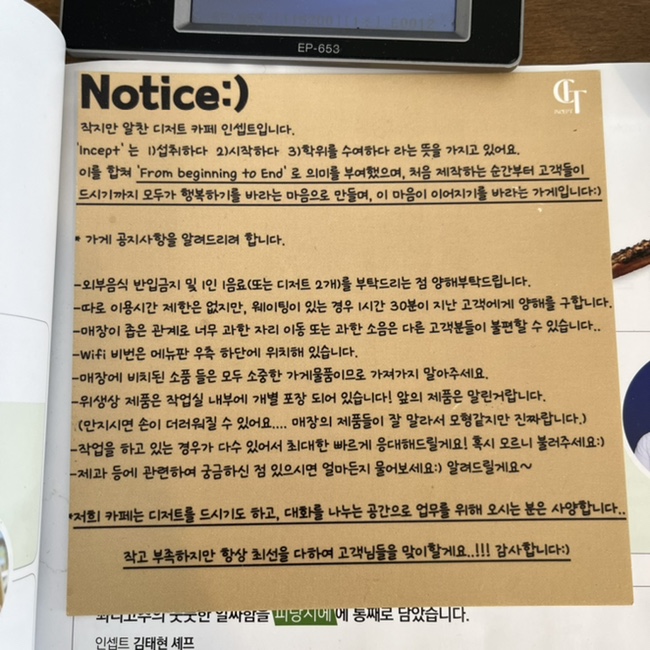 EP-653
Notice:)
작지만 알찬 디저트 카페 인셉트입니다.
'Incept' 는 1)섭취하다 2)시작하다 3)학위를 수여하다 라는 뜻을 가지고 있어요.
이를 합쳐 'From beginning to End' 로 의미를 부여했으며, 처음 제작하는 순간부터 고객들이
드시기까지 모두가 행복하기를 바라는 마음으로 만들며, 이 마음이 이어지기를 바라는 가게입니다:)
* 가게 공지사항을 알려드리려 합니다.
-외부음식 반입금지 및 1인 1음료(또는 디저트 2개)를 부탁드리는 점 양해부탁드립니다.
-따로 이용시간 제한은 없지만, 웨이팅이 있는 경우 1시간 30분이 지난 고객에게 양해를 구합니다.
-매장이 좁은 관계로 너무 과한 자리 이동 또는 과한 소음은 다른 고객분들이 불편할 수 있습니다..
-Wifi 비번은 메뉴판 우측 하단에 위치해 있습니다.
-매장에 비치된 소품 들은 모두 소중한 가게물품이므로 가져가지 말아주세요.
-위생상 제품은 작업실 내부에 개별 포장 되어 있습니다! 앞의 제품은 말린거랍니다.
(만지시면 손이 더러워질 수 있어요.... 매장의 제품들이 잘 말라서 모형같지만 진짜랍니다.)
-작업을 하고 있는 경우가 다수 있어서 최대한 빠르게 응대해드릴게요! 혹시 모르니 불러주세요:)
-제과 등에 관련하여 궁금하신 점 있으시면 얼마든지 물어보세요:) 알려드릴게요~
*저희 카페는 디저트를 드시기도 하고, 대화를 나누는 공간으로 업무를 위해 오시는 분은 사양합니다..
작고 부족하지만 항상 최선을 다하여 고객님들을 맞이할게요..!!! 감사합니다:)
쌉싸함을 파낭시에에 통째로 담았습니다.
인셉트 김태현 셰프